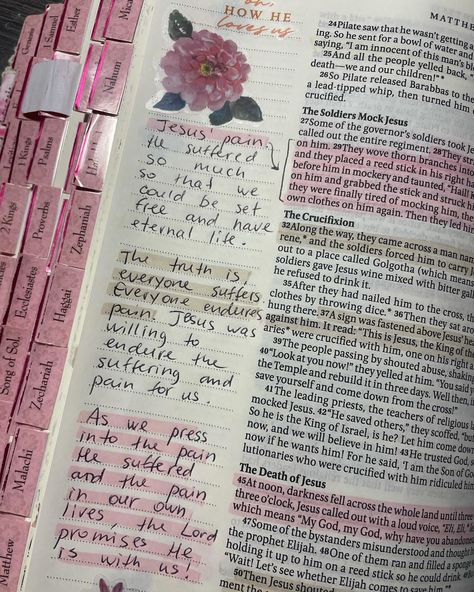 1 Samuel
1 Kings
2 Kings
Psalms
Proverbs
Ecclesiastes
Song of Sol.
Micah
Nahum
Zephaniah
Haggai
Zechariah
Malachi
Matthew
oh,
HOW HE
loves us
Jesus' pain,
He suffered
so much
so that we
could be set
free and have
eternal life.
The truth is,
everyone suffers.
Everyone endures
pain. Jesus was
willing to
endure the
suffering and
pain for us.
As we press
into the pain
He suffered
and the pain
in our own
lives, the Lord
promises He
is with us!
MATTHE
24Pilate saw that he wasn't getting an
ing. So he sent for a bowl of water and
saying, "I am innocent of this man's bl
25And all the people yelled back,
death—we and our children!"*
26So Pilate released Barabbas to the
a lead-tipped whip, then turned him
crucified.
The Soldiers Mock Jesus
27Some of the governor's soldiers took Je
called out the entire regiment. 28They st
on him. 29They wove thorn branches into
and they placed a reed stick in his right
before him in mockery and taunted, "Hail
on him and grabbed the stick and struck h
they were finally tired of mocking him, th
own clothes on him again. Then they led hi
The Crucifixion
32Along the way, they came across a man nam
rene,* and the soldiers forced him to carry
out to a place called Golgotha (which means
soldiers gave Jesus wine mixed with bitter gal
he refused to drink it.
35After they had nailed him to the cross, th
clothes by throwing dice.* 36Then they sat ar
hung there. 37A sign was fastened above Jesus' hea
against him. It read: "This is Jesus, the King of th
aries* were crucified with him, one on his right a
39The people passing by shouted abuse, shaking
40"Look at you now!" they yelled at him. "You said
the Temple and rebuild it in three days. Well then, i
save yourself and come down from the cross!"
41The leading priests, the teachers of religious la
mocked Jesus. 42"He saved others," they scoffed, "bu
So he is the King of Israel, is he? Let him come down
now, and we will believe in him! 43He trusted God, s
now if he wants him! For he said, 'I am the Son of God
lutionaries who were crucified with him ridiculed him
The Death of Jesus
45At noon, darkness fell across the whole land until thre
three o'clock, Jesus called out with a loud voice, "Eli, Eli,*
which means "My God, my God, why have you abandoned
47Some of the bystanders misunderstood and thought
the prophet Elijah. 48One of them ran and filled a sponge
holding it up to him on a reed stick so he could drink. 49B
"Wait! Let's see whether Elijah comes to save him."*
50Then Jesus shouted